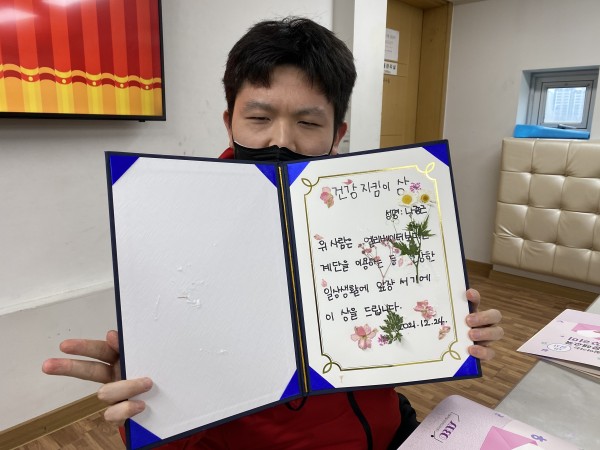 건강 지킴이 상
성명:
위 사람은 엘리베이터보다는
계단을 이용하는 등
일상생활에 앞장 서기에
이 상을 드립니다.
2021.12.24.